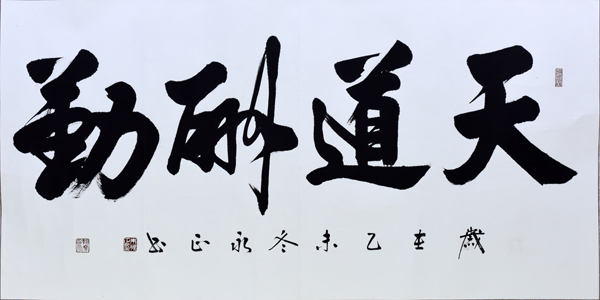 天道酬勤
歲在乙未冬永正书